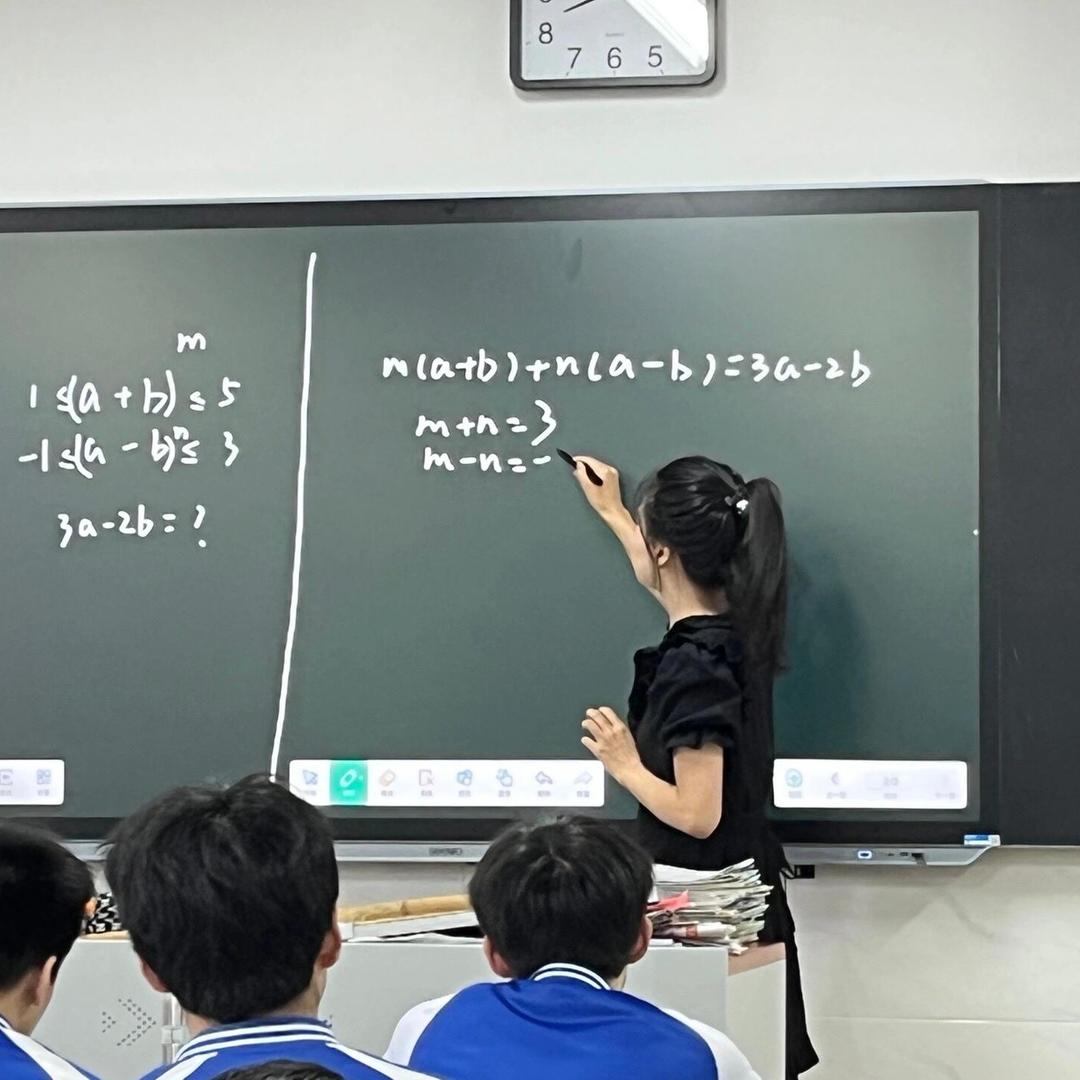 8
7 6 5
m
1 ≤(a + b) ≤ 5
-1 ≤(a - b)ⁿ≤ 3
3a-2b=?
m(a+b)+n(a-b)=3a-2b
m+n=3
m-n=-